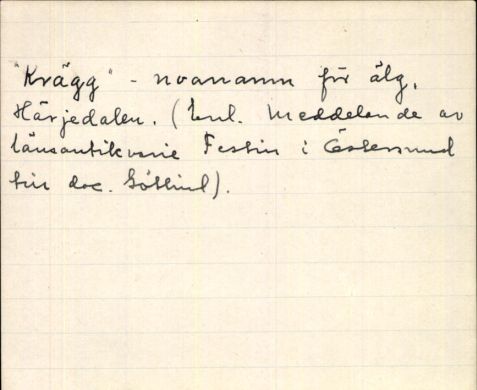 "Krägg" - noanamn för älg,
Härjedalen. (Enl. meddelande av
länsantikvarie Festin i Östersund
till doc. Götlind).